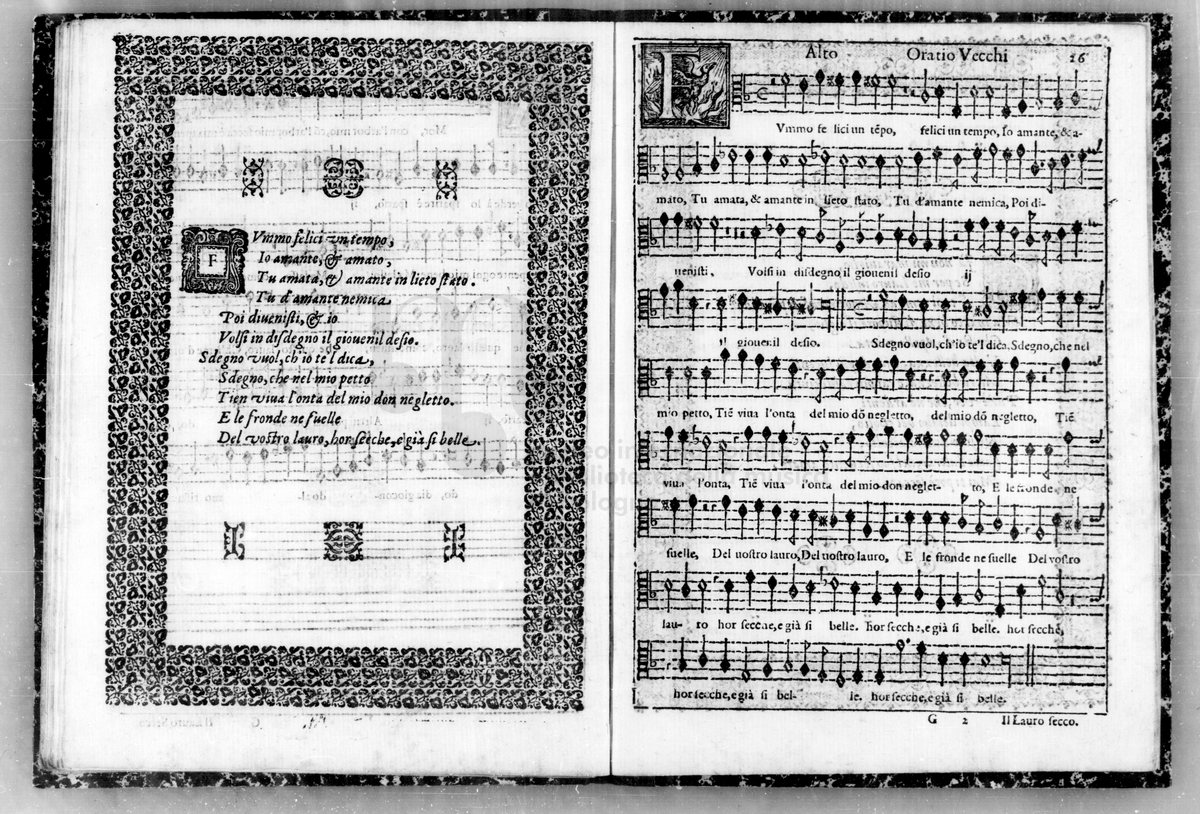 F
Vmmo felici vn tempo,
Io amante, & amato,
Tu amata, & amante in lieto stato.
Tu d'amante nemica
Poi diuenisti, & io
Volsi in disdegno il giouenil desio.
Sdegno vuol, ch'io te'l dica,
Sdegno, che nel mio petto
Tien viua l'onta del mio don negletto.
E le fronde ne suelle
Del vostro lauro, hor secche, e già si belle.
Alto Oratio Vecchi 26
F
Vmmo fe lici un tẽpo, felici un tempo, Io amante, & a-
mato, Tu amata, & amante in lieto stato, Tu d'amante nemica, Poi di-
uenisti. Volsi in disdegno il giouenil desio ij
il giouenil desio. Sdegno vuol, ch'io te'l dica. Sdegno, che nel
mio petto, Tiẽ viua l'onta del mio dõ negletto, del mio dõ negletto, Tiẽ
viua l'onta, Tiẽ viua l'onta del mio don neglet- to, E le fronde ne
suelle, Del uostro lauro, Del uostro lauro, E le fronde ne suelle Del vostro
lau- ro hor secche, e già si belle. hor secche, e già si belle. hor secche,
hor secche, e già si bel- le. hor secche, e già si belle.
G 2 Il Lauro secco.